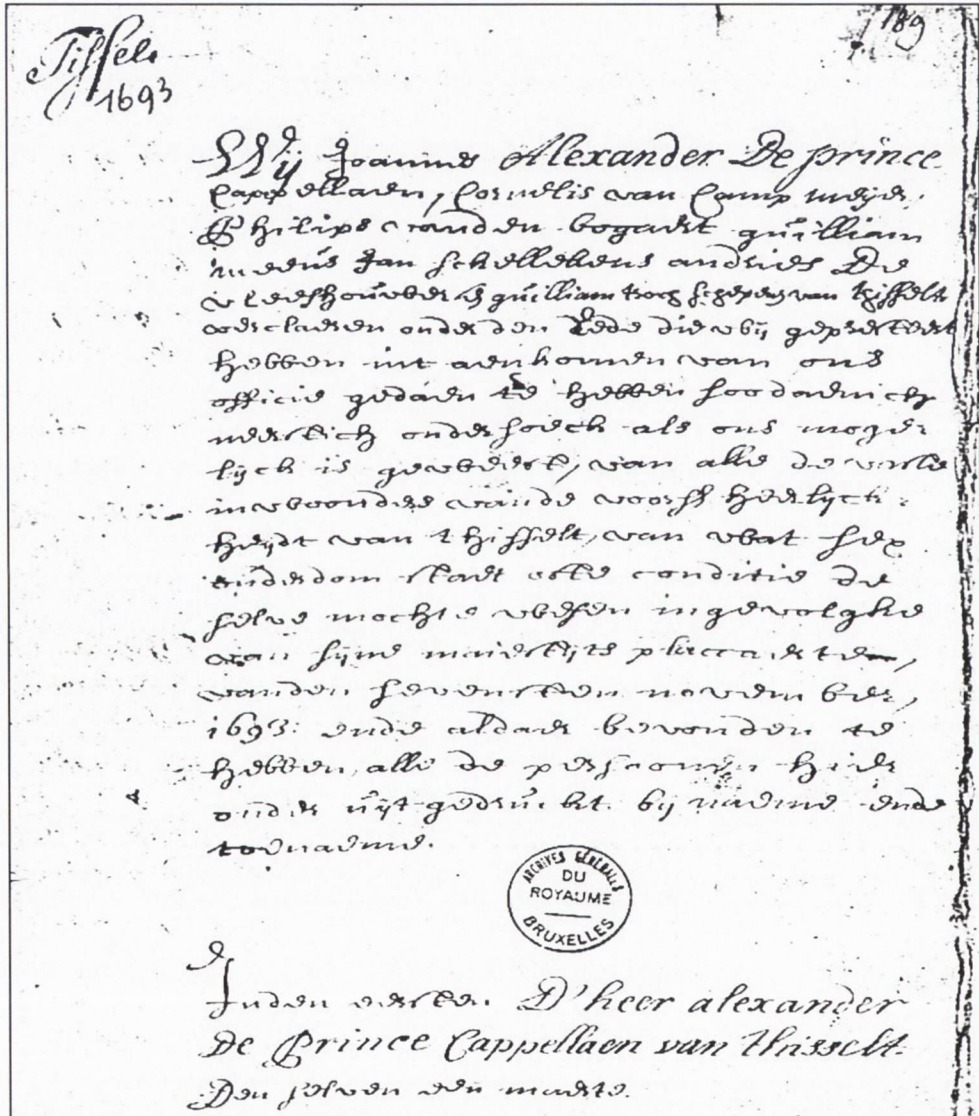 189
Tisselt
1693
Wij Joannes Alexander De prince
Cappellaen, Cornelis van Camp meijer
Philips vanden bogaert guilliam
meeus Jan schellekens andries De
vleeshouwer guilliam schepens van thisselt
verclaeren onder den Eede die wij gepresteert
hebben int aenkomen van ons
officie gedaen te hebben soodaenich
neerstich ondersoeck als ons moge-
lijck is geweest, van alle de
inwoondere vande voors. heerlijck-
heijdt van thisselt, van wat sex
ouderdom staet ofte conditie de
selve mochte wesen ingevolghe
van sijne maiesteijts placcaerte,
vanden sevensten november,
1693: ende aldaer bevonden te
hebben alle de persoonen hier
onder uijtgedruckt bij naeme ende
toenaeme.
ARCHIVES GÉNÉRALES
DU
ROYAUME
BRUXELLES
Inden eersten D'heer alexander
De Prince Cappellaen van thisselt
Den selven een maerte.